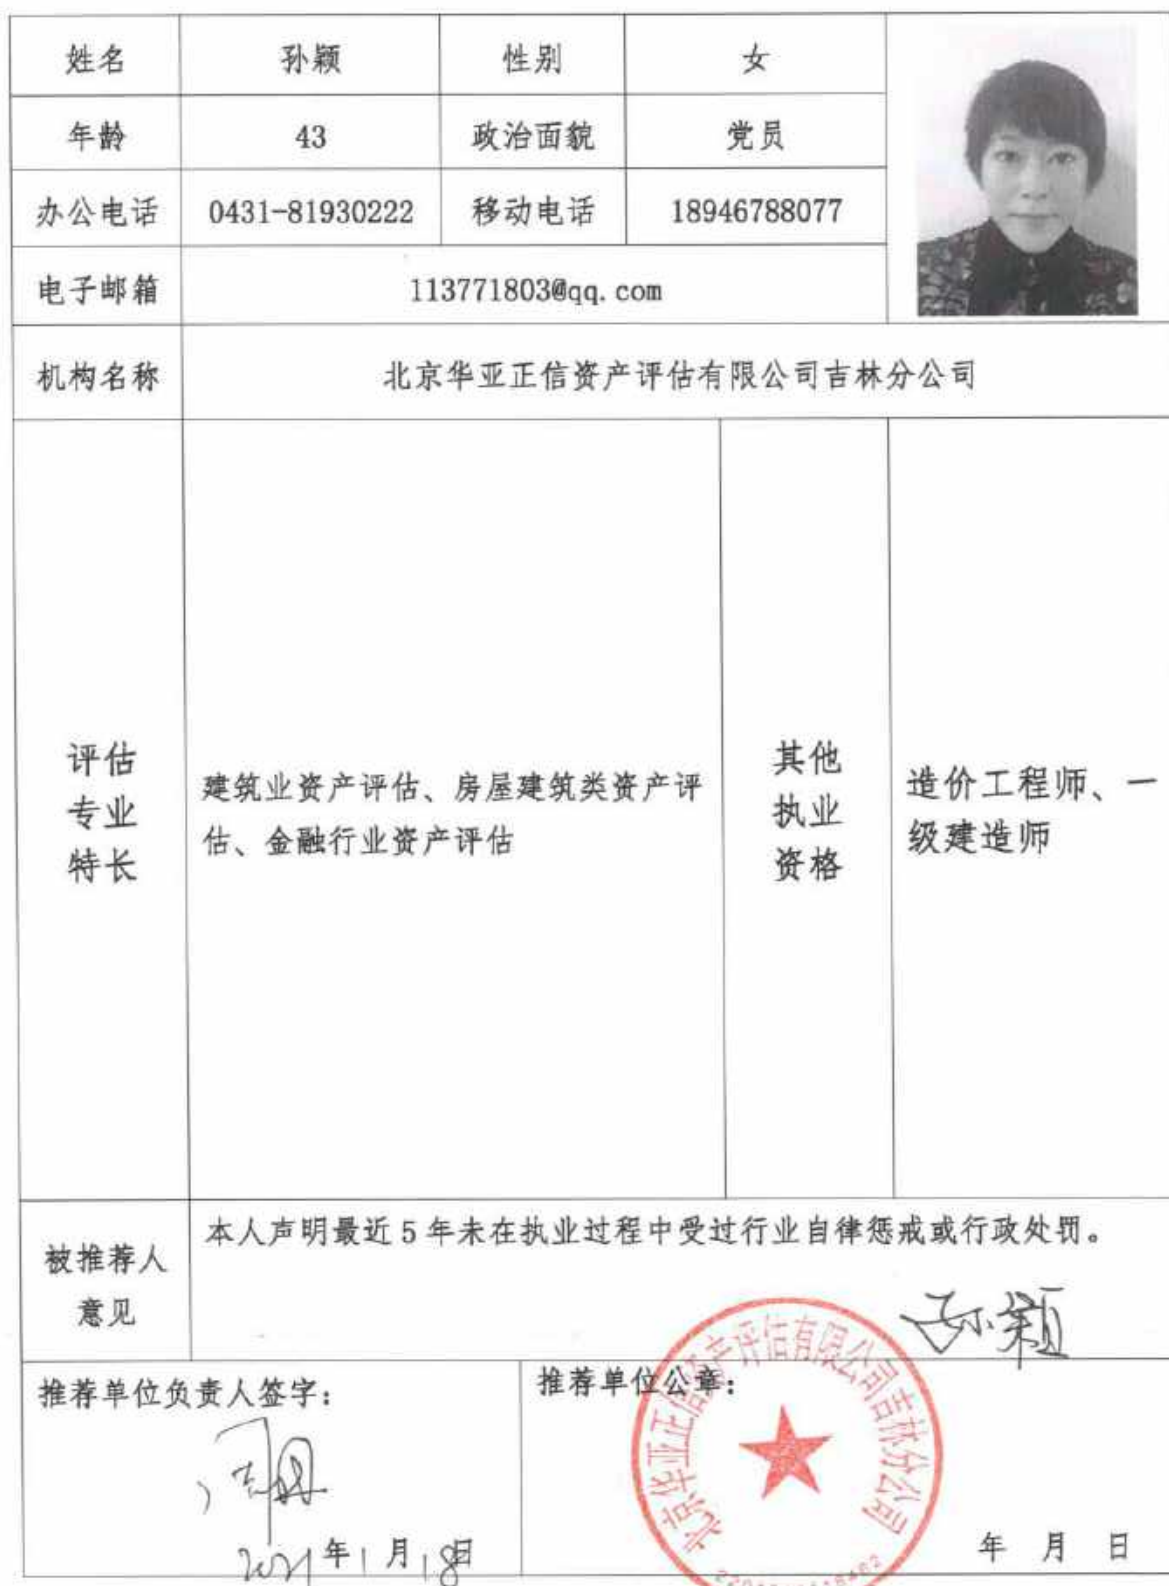 姓名 孙颖 性别 女
年龄 43 政治面貌 党员
办公电话 0431-81930222 移动电话 18946788077
电子邮箱 113771803@qq.com
机构名称 北京华亚正信资产评估有限公司吉林分公司
评估
专业
特长
建筑业资产评估、房屋建筑类资产评
估、金融行业资产评估
其他
执业
资格
造价工程师、一
级建造师
被推荐人
意见
本人声明最近5年未在执业过程中受过行业自律惩戒或行政处罚。
孙颖
推荐单位负责人签字:
2021年1月18日
推荐单位公章:
北京华亚正信资产评估有限公司吉林分公司
年 月 日